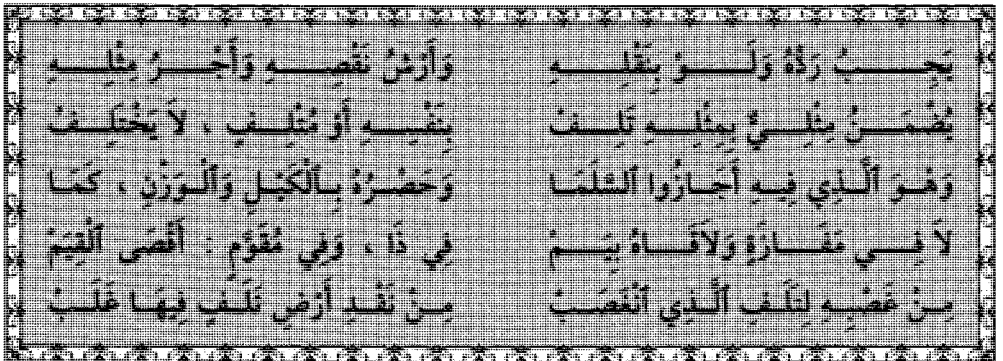 يَجِبُ رَدُّهُ وَلَوْ بِنَقْلِهِ وَأَرْشُ نَقْصِهِ وَأَجْرُ مِثْلِهِ
يُضْمَنُ مِثْلِيٌّ بِمِثْلِهِ تَلِفْ بِنَفْسِهِ أَوْ مُتْلِفٍ ، لَا يَخْتَلِفْ
وَهْوَ ٱلَّذِي فِيهِ أَجَازُوا ٱلسَّلَمَا وَحَصْرُهُ بِٱلْكَيْلِ وَٱلْوَزْنِ ، كَمَا
لَا فِي مَفَازَةٍ وَلَاقَاهُ بِيَمْ فِي ذَا ، وَفِي مُقَوَّمٍ : أَقْصَى ٱلْقِيَمْ
مِنْ غَصْبِهِ لِتَلَفِ ٱلَّذِي ٱنْغَصَبْ مِنْ نَقْدِ أَرْضٍ تَلَفٍ فِيهَا غَلَبْ